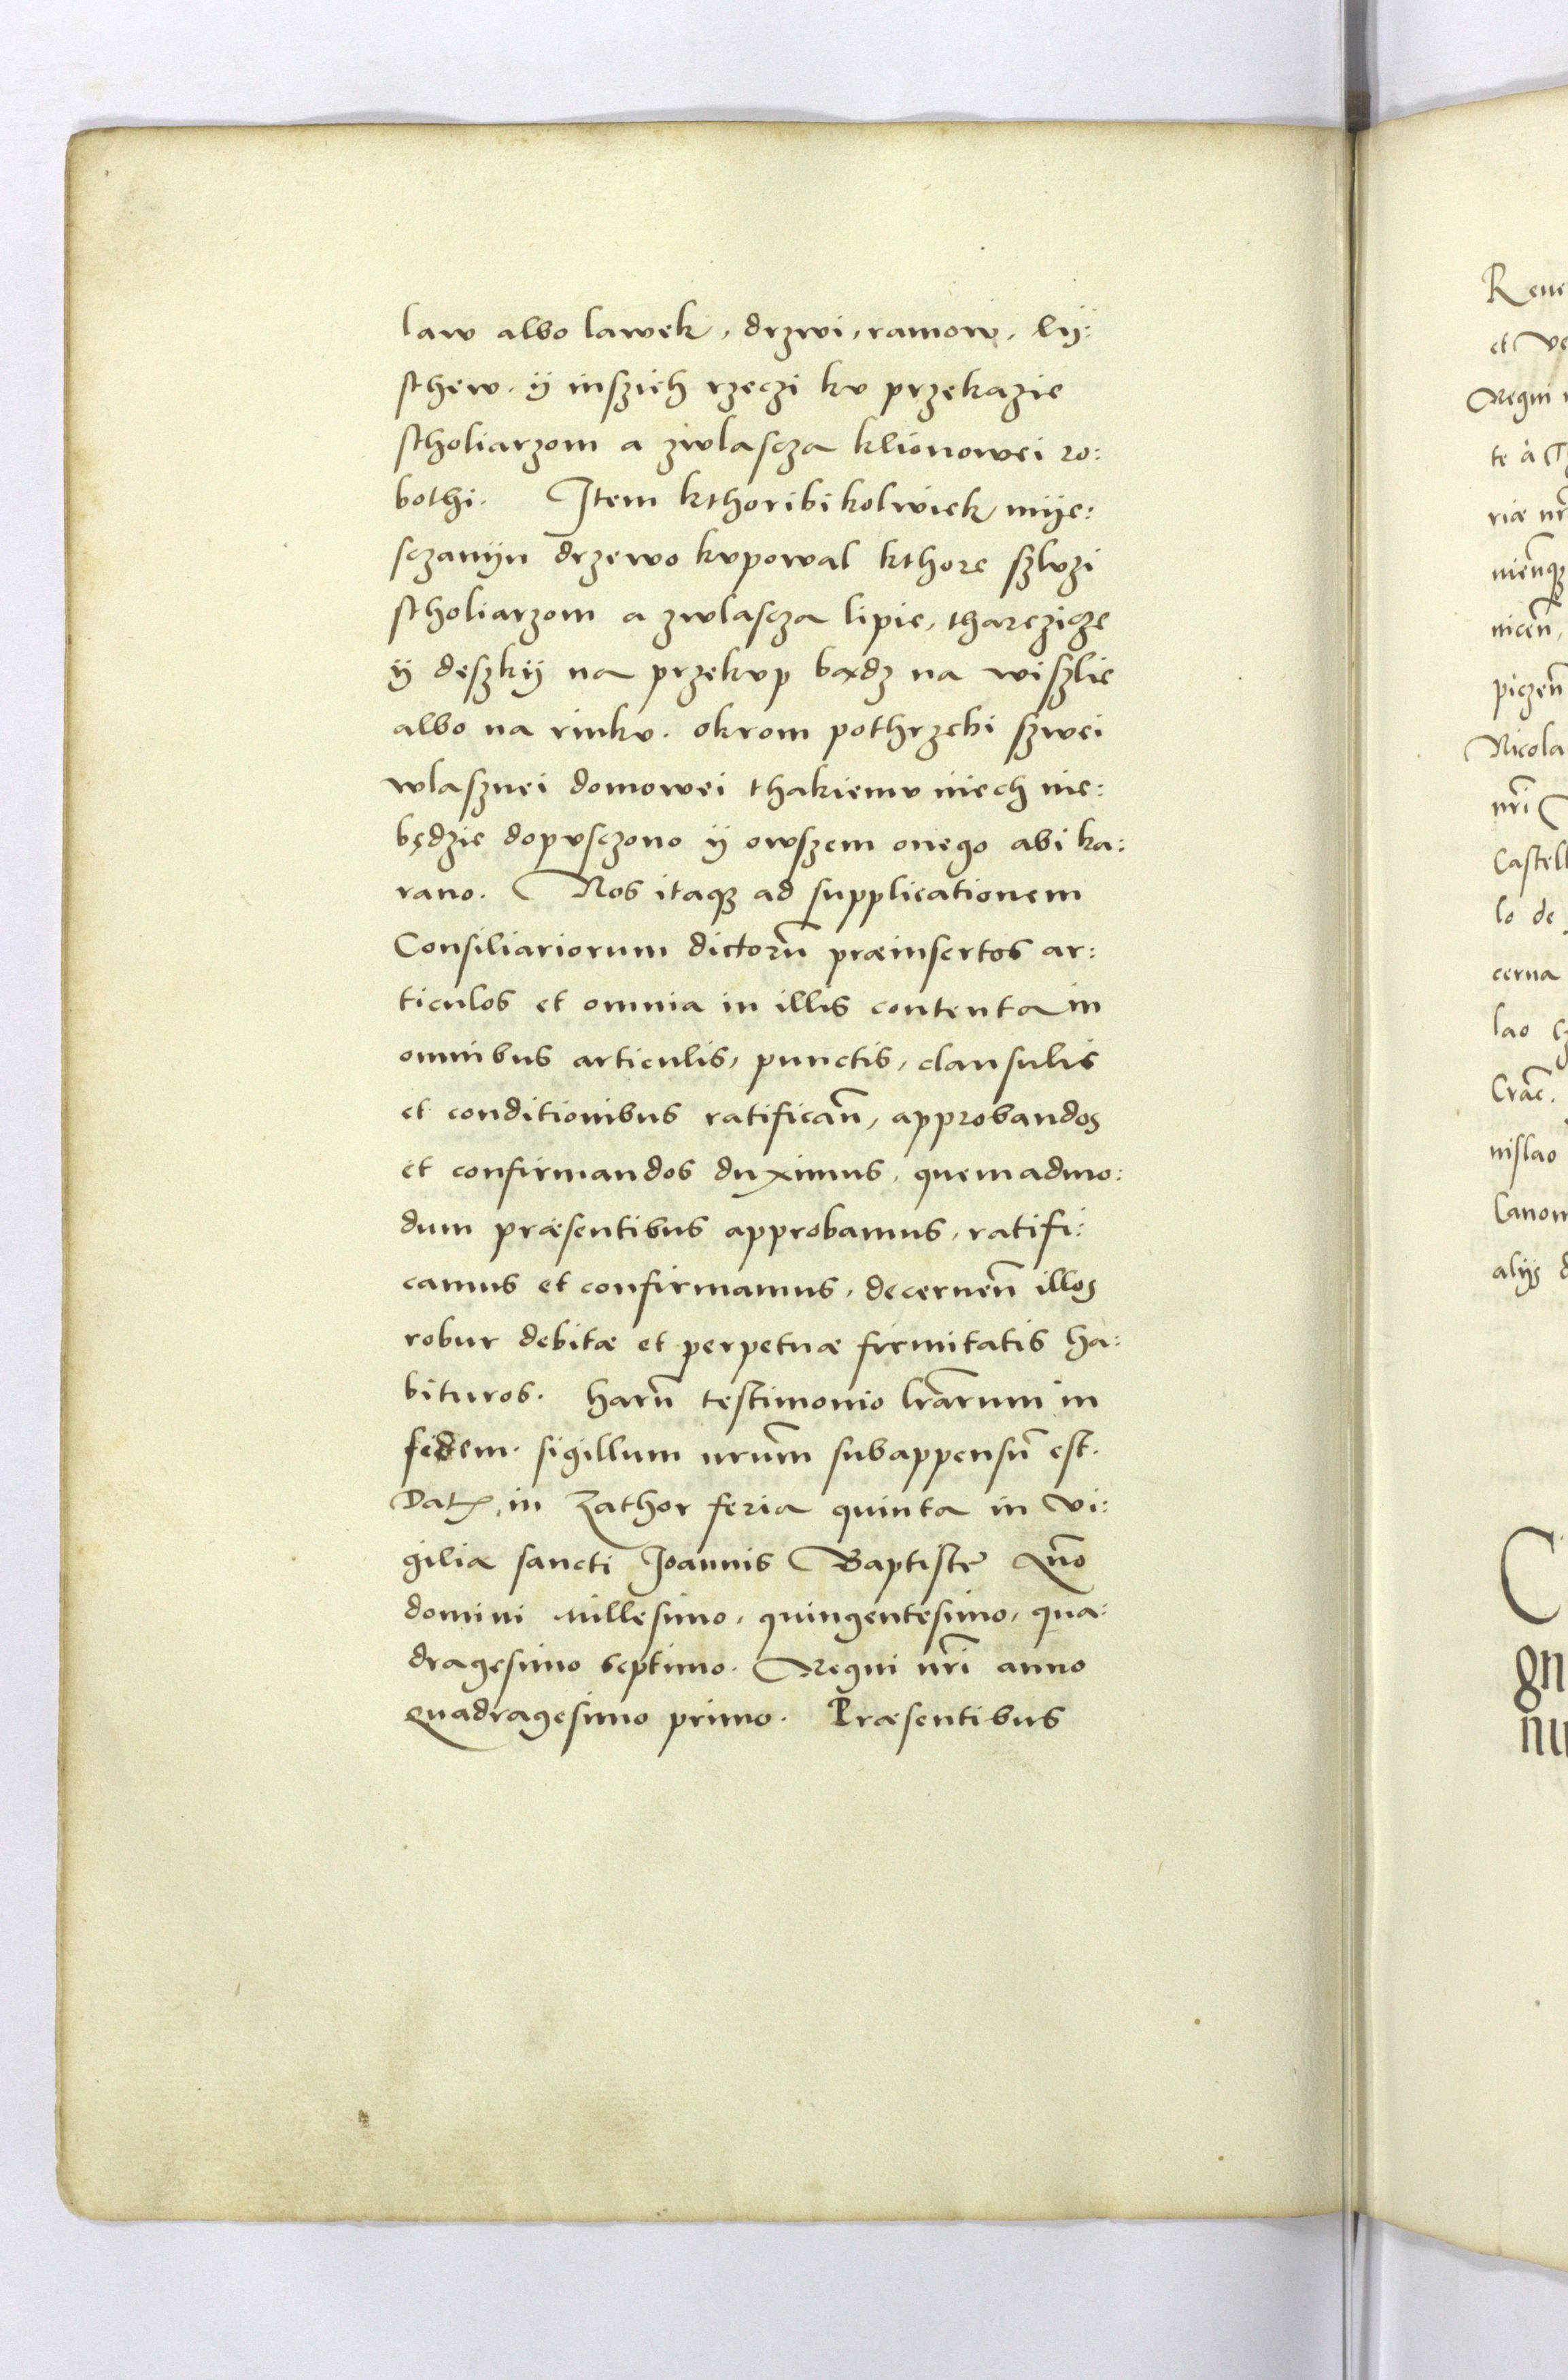 law albo lawek, drzwi, ramow, lij:
schew. ÿ inszich rzeczi kv przekazie
stholiarzom a zwlascza klionowei ro:
bothi. Item kthoribikolwiek mije:
sczanijn drzewo kvpowal kthore szlvzi
stholiarzom a zwlascza lipie, tharczicze
ÿ deszkij na przekvp bądz na wiszlie
albo na rinkv. okrom pothrzebi szwei
wlasznei domowei thakiemv niech nie:
będzie dopvsczono ÿ owszem onego abi ka:
rano. Nos itaqȝ ad supplicationem
Consiliariorum dictorū præinsertos ar:
ticulos et omnia in illis contenta in
omnibus articulis, punctis, clausulis
et conditionibus ratifican̄, approbandos
et confirmandos duximus, quemadmo:
dum præsentibus approbamus, ratifi:
camus et confirmamus, decernen̄ illos
robur debitæ et perpetuæ firmitatis ha:
bituros. harū testimonio lrārum in
fidem. sigillum nrūm subappensū est.
Dat, in Zathor feria quinta in vi:
gilia sancti Joannis Baptistę Año
domini millesimo, quingentesimo, qua:
dragesimo septimo. Regni nrī anno
quadragesimo primo. Præsentibus
Reue
et ve
Regni
te à
riæ nr̄
nien̄qȝ
nicen̄,
piczen̄
Nicola
nrī
Castell
lo de
cerna
lao
Crac̄.
nislao
Canon
alijs
C
gn